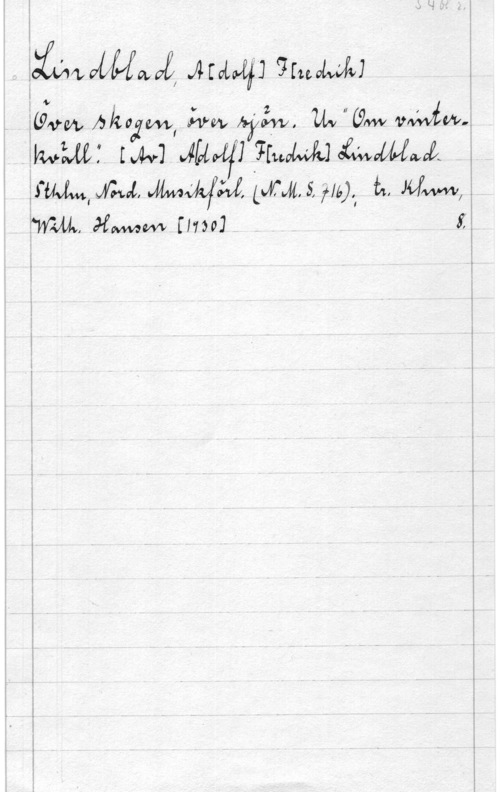 Lindblad, A[dolf] F[redrik]
Över skogen, över sjön. Ur "Om vinter-
kväll". [Av] A[dolf] F[redrik] Lindblad.
Sthlm, Nord. Musikförl. (N.M.S. 716), tr. Khvn,
Wilh. Hansen [1930] 8.